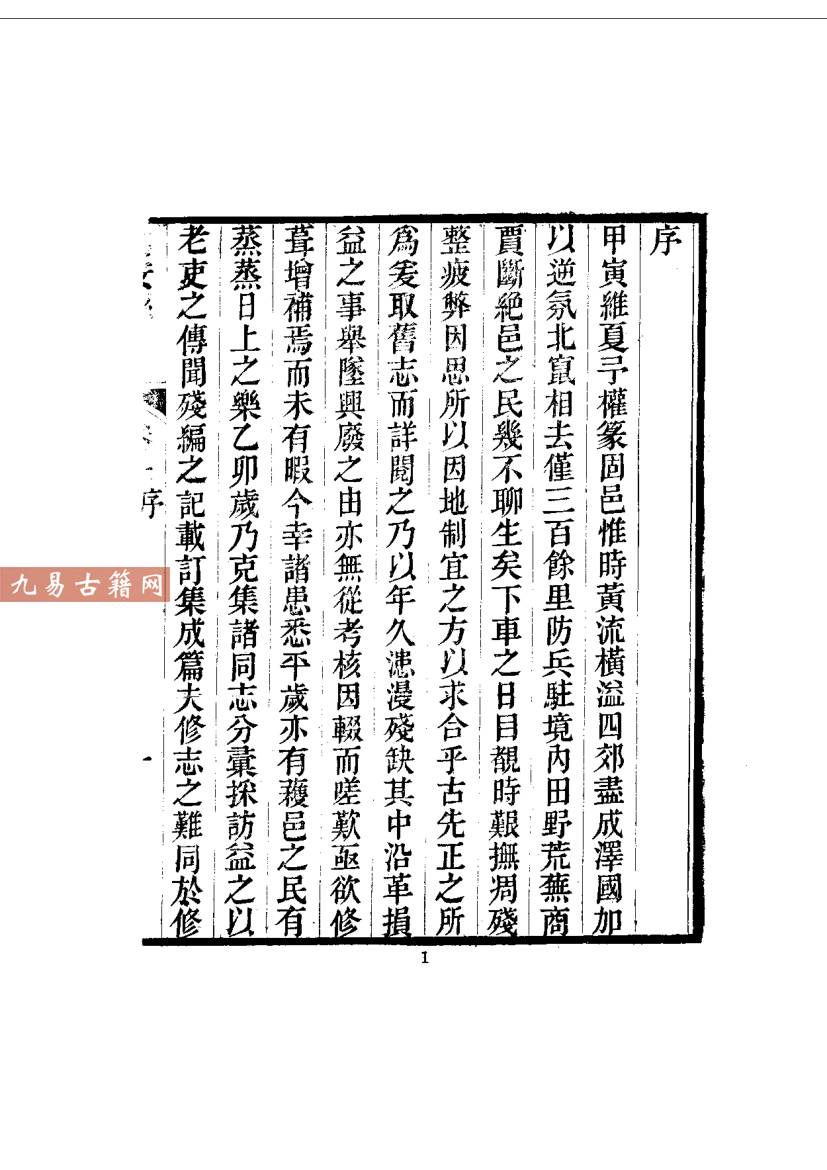 序
甲寅維夏予權篆固邑惟時黃流橫溢四郊盡成澤國加
以逆氛北竄相去僅三百餘里防兵駐境內田野荒蕪商
賈斷絕邑之民幾不聊生矣下車之日目覩時艱撫凋殘
整疲弊因思所以因地制宜之方以求合乎古先正之所
爲爰取舊志而詳閱之乃以年久漶漫殘缺其中沿革損
益之事舉墜興廢之由亦無從考核因輟而嗟歎亟欲修
葺增補焉而未有暇今幸諸患悉平歲亦有穫邑之民有
蒸蒸日上之樂乙卯歲乃克集諸同志分彙採訪益之以
老吏之傳聞殘編之記載訂集成篇夫修志之難同於修
序
一
九易古籍网
1